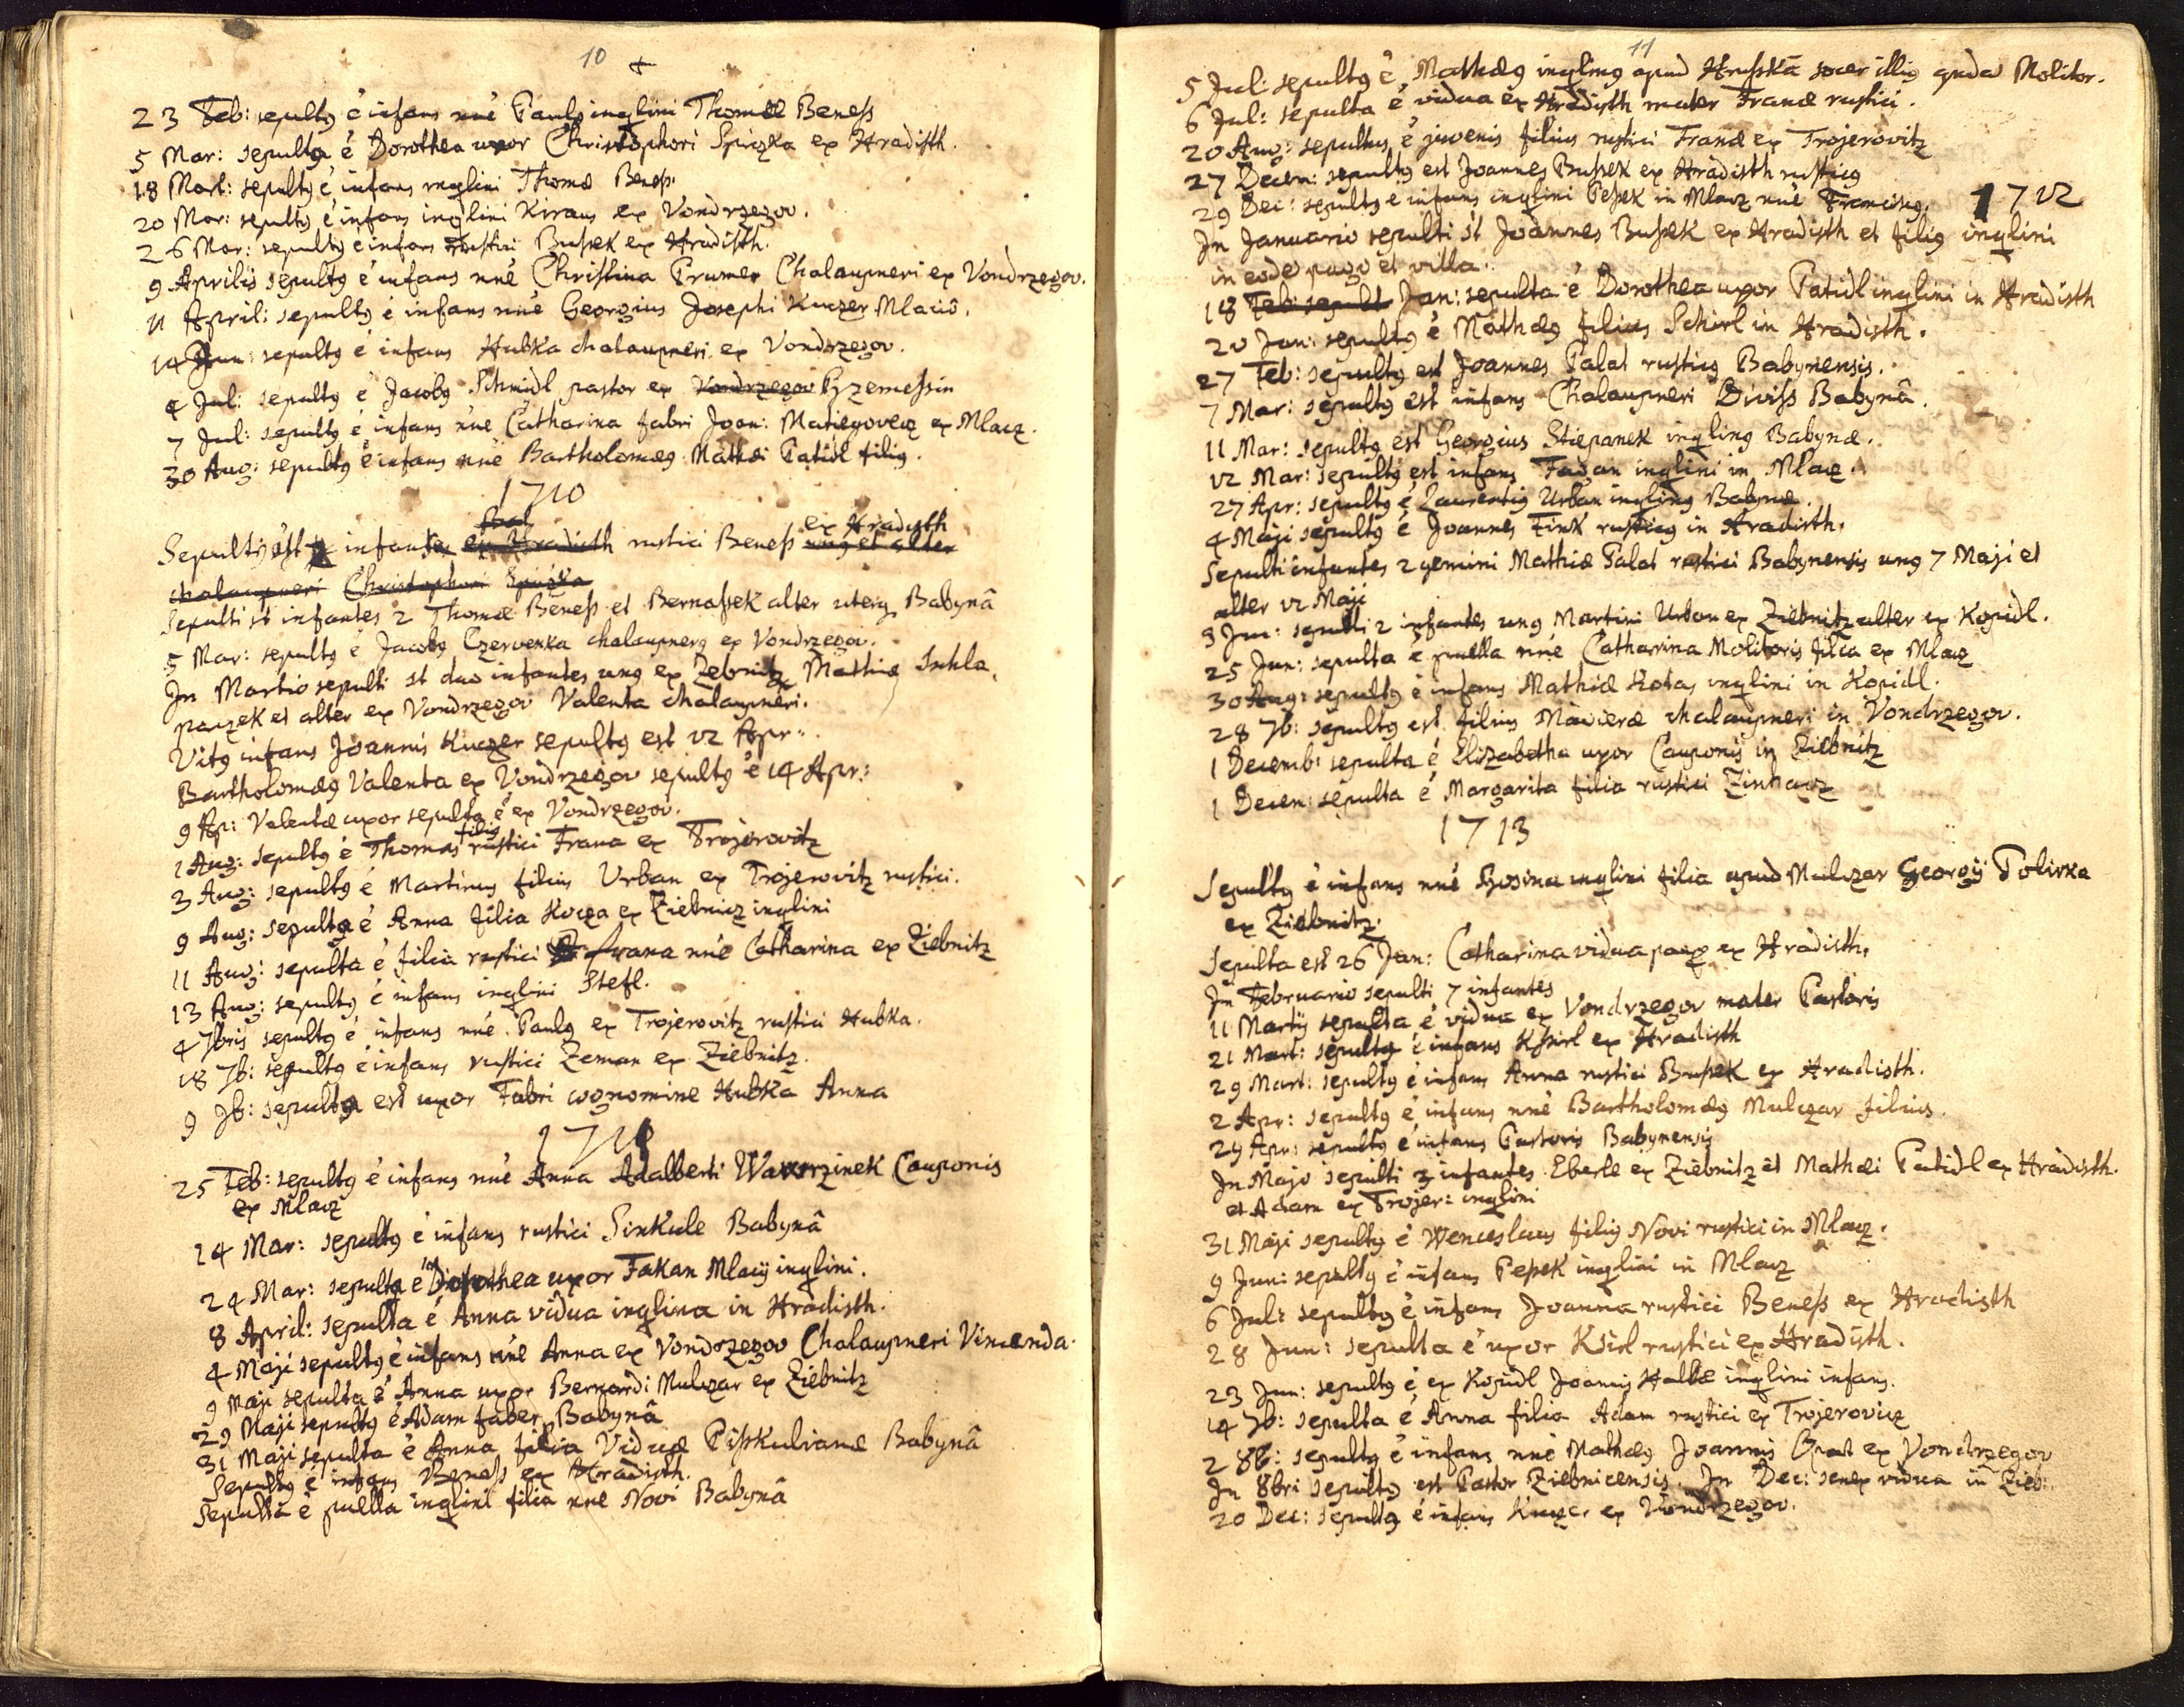 10
23 Feb: sepultg é infans nné Paulg inqlini Thomæ Beness
5 Mar: sepulta é Dorothea uxor Christophori Spiczka ex Hradisth.
18 Mart: sepultg é infans inqlini Thomæ Beness.
20 Mar: sepultg é infans inqlini Kiraus ex Vondrzegov.
26 Mar: sepultg é infans rustici Bussek ex Hradisth.
9 Aprilis sepultg é infans nné Christina Prumer Chalaupneri ex Vondrzegov.
11 April: sepultg é infans nné Georgius Josephi Kuczer Mlacio.
14 Jun: sepultg é infans Hubka chalaupneri ex Vondrzegov.
4 Jul: sepultg é Jacobg Schmidl pastor ex Vondrzegov Przemessin
7 Jul: sepultg é infans nné Catharina fabri Joan: Matiegovecz ex Mlacz.
30 Aug: sepultg é infans nné Bartholomæg Mathæi Patidl filig.
1710
Sepultg est infans ex Hradisth rustici Beness ung et alter ex Hradisth
chalaupneri Christophori Spiczka
Sepulti st infantes 2 Thomæ Beness et Bernassek alter uterg Babynâ
5 Mar: sepultg é Jacobg Czervenka chalaupnerg ex Vondrzegov.
In Martio sepulti st duo infantes ung ex Zebnitz Mathiæ Schla,
paczek et alter ex Vondrzegov Valenta chalaupneri.
Vitg infans Joannis Kuczer sepultg est 12 Apr:
Bartholomæg Valenta ex Vondrzegov sepultg é 14 Apr:
9 Ap: Valentæ uxor sepulta é ex Vondrzegov.
1 Aug: sepultg é Thomas filig rustici Frana ex Trojerovitz
3 Aug: sepultg é Martinus filius Urban ex Trojerovitz rustici.
9 Aug: sepulta é Anna filia Kocza ex Ziebnicz inqlini
11 Aug: sepulta é filia rustici Frana nné Catharina ex Ziebnitz
13 Aug: sepultg é infans inqlini Stefl.
4 7bris sepultg é infans nné Paulg ex Trojerovitz rustici Hubka.
18 7b: sepultg é infans rustici Zeman ex Ziebnitz.
9 Jb: sepulta est uxor Fabri cognomine Hubka Anna
1711
25 Feb: sepultg é infans nné Anna Adalberti Wawrzinek Cauponis
ex Mlacz
14 Mar: sepultg é infans rustici Sinkule Babynâ
24 Mar: sepulta é Dorothea uxor Fakan Mlacij inqlini.
8 April: sepulta é Anna vidua inqlina in Hradisth.
4 Maji sepultg é infans nné Anna ex Vondrzegov Chalaupneri Vincenda.
9 Maji sepulta é Anna uxor Bernardi Mulczar ex Ziebnitz
29 Maji sepultg é Adam faber Babynâ
31 Maji sepulta é Anna filia Viduæ Pisskulianæ Babynâ
Sepultg é infans Beness ex Hradisth.
Sepulta é puella inqlini filia nne Novi Babynâ
11
5 Jul: sepultg é Mathæg inqlinus apud Hrusskâ socer illig qnda Molitor.
6 Jul: sepulta é vidua ex Hradisth mater Franæ rustici.
20 Aug: sepultus é juvenis filius rustici Franæ ex Trojerovitz
27 Decem: sepultg est Joannes Bussek ex Hradisth rusticg
29 Dec: sepultg é infans inqlini Pessek in Mlacz nné Franciscg.
1712
In Januario sepulti st Joannes Bussek ex Hradisth et filig inqlini
in eode pago et villa.
18 Feb: sepult Jan: sepulta é Dorothea uxor Patidl inqlini in Hradisth
20 Jan: sepultg é Mathæg filius Schirl in Hradisth.
27 Feb: sepultg est Joannes Palat rusticg Babynensis.
7 Mar: sepultg est infans Chalaupneri Diviss Babynâ.
11 Mar: sepultg est Georgius Stiepanek inqling Babynæ.
12 Mar: sepultg est infans Fagan inqlini in Mlacz.
27 Apr: sepultg é Laurentig Urban inqling Babynæ.
4 Maji sepultg é Joannes Fink rusticg in Hradisth.
Sepulti infantes 2 gemini Mathiæ Palat rustici Babynensis ung 7 Maji et
alter 12 Maji
3 Jun: sepulti 2 infantes ung Martini Urban ex Ziebnitz alter ex Kopidl.
25 Jun: sepulta é puella nné Catharina Molitoris filia ex Mlacz
30 Aug: sepultg é infans Mathiæ Kotas inqlini in Kopidl.
28 7b: sepultg est filius Macieræ chalaupneri in Vondrzegov.
1 Decemb: sepulta é Elizabetha uxor Cauponis in Ziebnitz
1 Decem: sepulta é Margarita filia rustici Zinhacz
1713
Sepultg é infans nné Rosina inqlini filia apud Mulczar Georgij Polivka
ex Ziebnitz.
Sepulta est 26 Jan: Catharina vidua paup ex Hradisth.
In Februario sepulti 7 infantes
11 Martij sepulta é vidua ex Vondrzegov mater Pastoris
21 Mart: sepultg é infans Kssirl ex Hradisth
29 Mart: sepultg é infans Anna rustici Bussek ex Hradisth.
2 Apr: sepultg é infans nné Bartholomæg Mulczar filius.
29 Apr: sepultg é infans Pastoris Babynensis
In Majo sepulti 3 infantes Eberle ex Ziebnitz et Mathæi Patidl ex Hradisth.
et Adam ex Trojer: inqlini
31 Maji sepultg é Wenceslaus filig Novi rustici in Mlacz.
9 Jun: sepultg é infans Pessek inqlini in Mlacz
6 Jul: sepultg é infans Joanna rustici Beness ex Hradisth
28 Jun: sepulta é uxor Ksirl rustici ex Hradisth.
23 Jun: sepultg é ex Kopidl Joannis Halbæ inqlini infans.
14 7b: sepulta é Anna filia Adam rustici ex Trojerovicz
2 8b: sepultg é infans nné Mathæg Joannis Brat ex Vondrzegov
In 8bri sepultg est Pastor Ziebnicensis. In Dec: senex vidua in Zieb:
20 Dec: sepultg é infans Kuczer ex Vondrzegov.